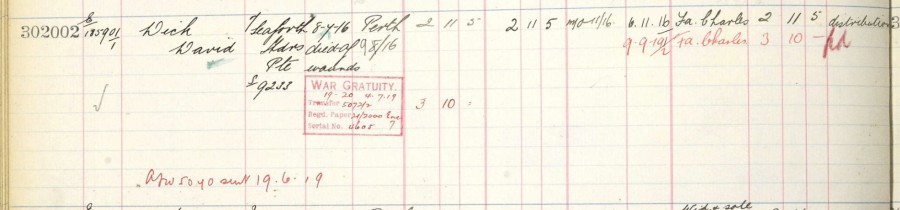 302002 E/185901/1 Dick 7/Seaforth 8-7-16 Perth 2 11 5 2 11 5 MO 11/16. 6.11.16 Fa. Charles 2 11 5 distribution
David Hdrs died of 9 8/16 9-9-19 Fa. Charles 3 10 -
Pte wounds
S/9233
WAR GRATUITY.
19-20 4.7.19
Transfer 507 2/2
Regd. Paper 21/2000 Enc 7
Serial No. 4605
3 10 =
AFW 5040 sent 19.6.19
Wid & sole